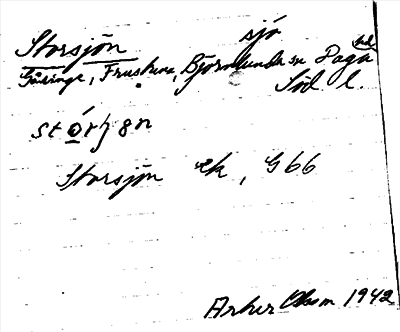 Storsjön sjö
Gåsinge, Frustuna, Björnlunda sn Daga hd
Söd l.
Storsjön ek, G66
Arher Olson 1942